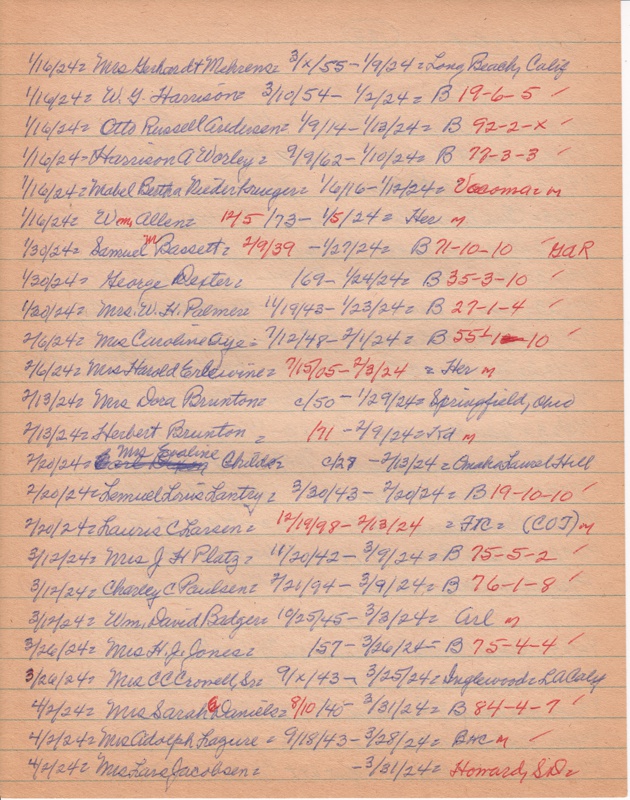 1/16/24= Mrs Gerhardt Mehrens= 3/x/55 - 1/9/24= Long Beach, Calif
1/16/24= W. G. Harrison= 3/10/54 - 1/2/24= B 19-6-5 ✓
1/16/24= Otto Russell Andersen= 1/9/14 - 1/13/24= B 92-2-x ✓
1/16/24= Harrison A Worley= 9/9/62 - 1/10/24= B 77-3-3 ✓
1/16/24= Mabel Bertha Niederkrueger= 1/6/16 - 1/12/24= Vacoma= m
1/16/24= Wm, Allen= 12/5/73 - 1/5/24= Her m
1/30/24= Samuel M Bassett= 2/9/39 - 1/27/24= B 71-10-10 ✓ GAR
1/30/24= George Dexter= /69 - 1/24/24= B 35-3-10 ✓
1/30/24= Mrs. W. H. Palmer= 11/19/43 - 1/23/24= B 27-1-4 ✓
2/6/24= Mrs Caroline Aye= 7/12/48 - 2/1/24= B 55 10
2/6/24= Mrs Harold Erlewine= 7/15/05 - 2/3/24 = Her m
2/13/24= Mrs Dora Brunton= c/50 - 1/29/24= Springfield, Ohio
2/13/24= Herbert Brunton = /71 - 2/9/24= m
2/20/24= Mrs Evaline Childs= c/27 - 2/13/24= Omaha Laurel Hill
2/20/24= Lemuel Louis Lantry= 3/30/43 - 2/20/24= B 19-10-10 ✓
2/20/24= Lauris C Larsen= 12/19/98 - 2/13/24 = FtC= (COT) m
3/12/24= Mrs J H Platz= 11/20/42 - 3/9/24= B 75-5-2 ✓
3/12/24= Charley C Paulsen= 2/21/94 - 3/9/24= B 76-1-8 ✓
3/12/24= Wm, David Badger= 10/25/45 - 3/3/24= Arl m
3/26/24= Mrs H. J. Jones= /57 - 3/26/24= B 75-4-4 ✓
3/26/24= Mrs CC Crowell, Sr= 9/x/43 - 3/25/24= Inglewood= LA Calif
4/2/24= Mrs Sarah E Daniels= 8/10/40 - 3/31/24= B 84-4-7 ✓
4/2/24= Mrs Adolph Lagure= 9/18/43 - 3/28/24= BHC m ✓
4/2/24= Mrs Lars Jacobsen= - 3/31/24= Howard, S.D=